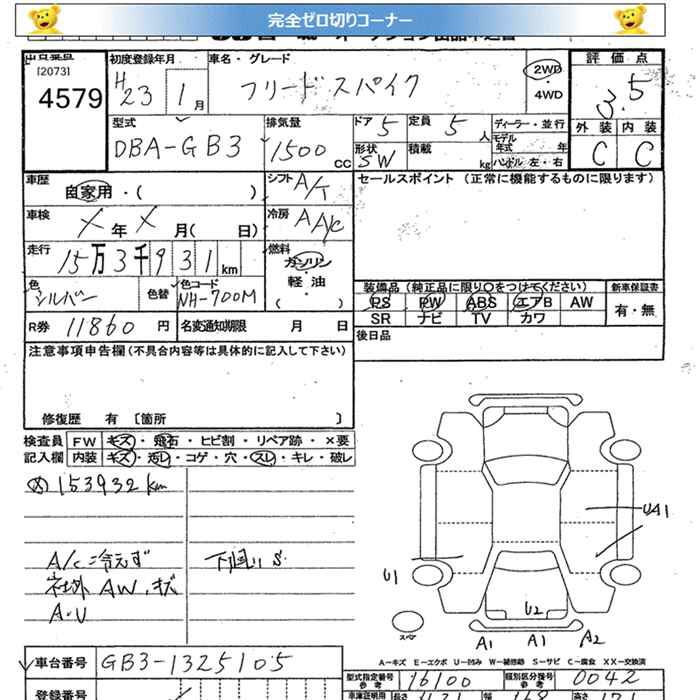 完全ゼロ切りコーナー
[2073]
4579
初度登録年月
H23 1月
車名・グレード
フリードスパイク
2WD
・
4WD
評価点
3.5
外装 内装
C C
型式
DBA-GB3
排気量
1500 cc
ドア 5
定員 5 人
形状 SW
積載 kg
ディーラー・並行
モデル年式 年
ハンドル 左・右
車歴
自家用・( )
シフト A/T
セールスポイント (正常に機能するものに限ります)
車検
X年X月( 日)
冷房 A A/C
走行
15万3千931km
燃料
ガソリン
・
軽油
色
シルバー
色替
色コード
NH-700M
装備品 (純正品に限り○をつけてください)
新車保証書
PS PW ABS エアB AW
SR ナビ TV カワ
有・無
R券 11860 円
名変通知期限 月 日
後日品
注意事項申告欄 (不具合内容等は具体的に記入して下さい)
修復歴 有 〔箇所 〕
検査員 FW キズ・飛石・ヒビ割・リペア跡・×要
記入欄 内装 キズ・汚レ・コゲ・穴・スレ・キレ・破レ
153932km
A/C冷えず
下回りS
社外AW.キズ
A.U
UA1
U1
U2
スペア
A1 A1 A2
A-キズ E-エクボ U-凹み W-補修跡 S-サビ C-腐食 XX-交換済
車台番号 GB3-1325105
型式指定番号 参考 16100
類別区分番号 参考 0042
登録番号
長さ
幅 168
高さ 171